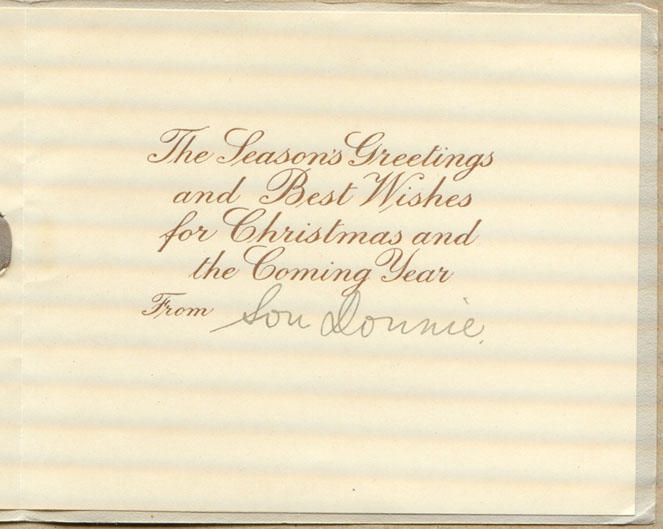 The Season's Greetings
and Best Wishes
for Christmas and
the Coming Year
From Son Donnie.